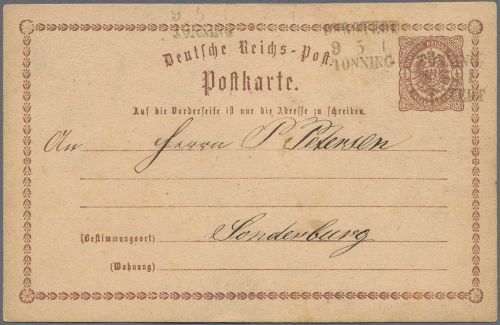 9 5
TÖNNING
9 5 1
TÖNNING
Deutsche Reichs-Post.
Postkarte.
Auf die Vorderseite ist nur die Adresse zu schreiben.
An Herrn P Petersen
(Bestimmungsort) Sonderburg
(Wohnung)